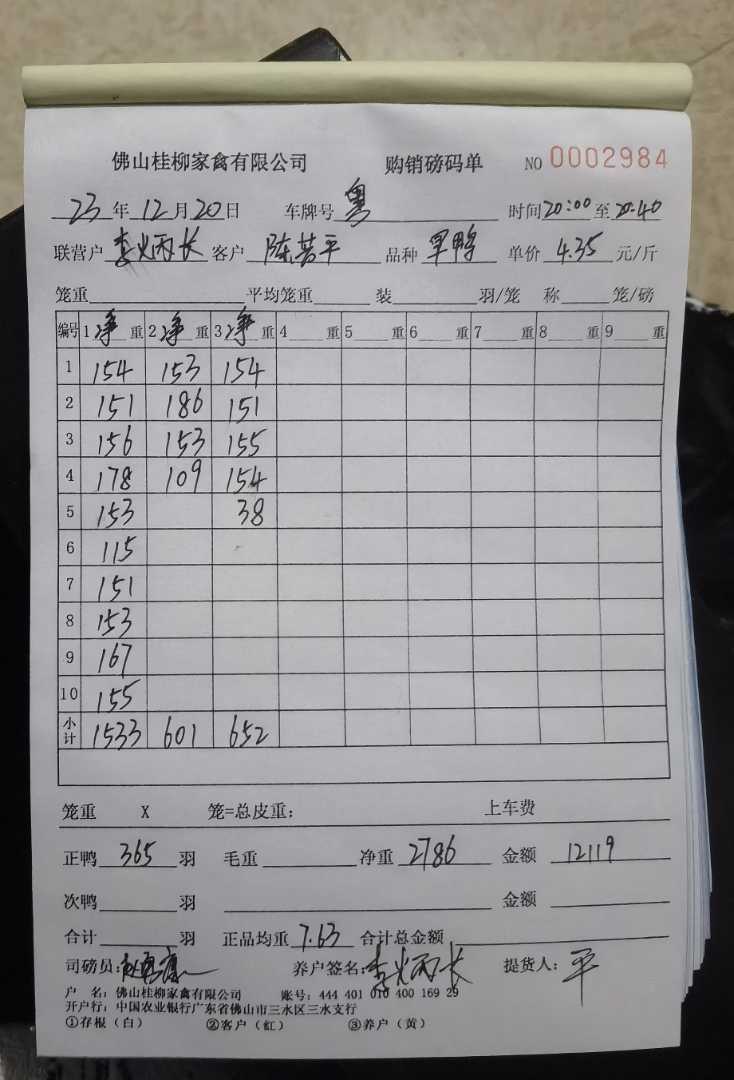 佛山桂柳家禽有限公司 购销磅码单 NO 0002984
23年12月20日 车牌号 粤 时间20:00至20.40
联营户 李火丙长 客户 陈 平 品种 旱鸭 单价 4.35 元/斤
笼重 平均笼重 装 羽/笼 称 笼/磅
编号 1净重 2净重 3净重 4 重 5 重 6 重 7 重 8 重 9 重
1 154 153 154
2 151 186 151
3 156 153 155
4 178 109 154
5 153 38
6 115
7 151
8 153
9 167
10 155
小计 1533 601 652
笼重 X 笼=总皮重: 上车费
正鸭 365 羽 毛重 净重 2786 金额 12119
次鸭 羽 金额
合计 羽 正品均重 7.63 合计总金额
司磅员: 养户签名: 李火丙长 提货人: 平
户 名: 佛山桂柳家禽有限公司 账号: 444 401 010 400 169 29
开户行: 中国农业银行广东省佛山市三水区三水支行
①存根(白) ②客户(红) ③养户(黄)